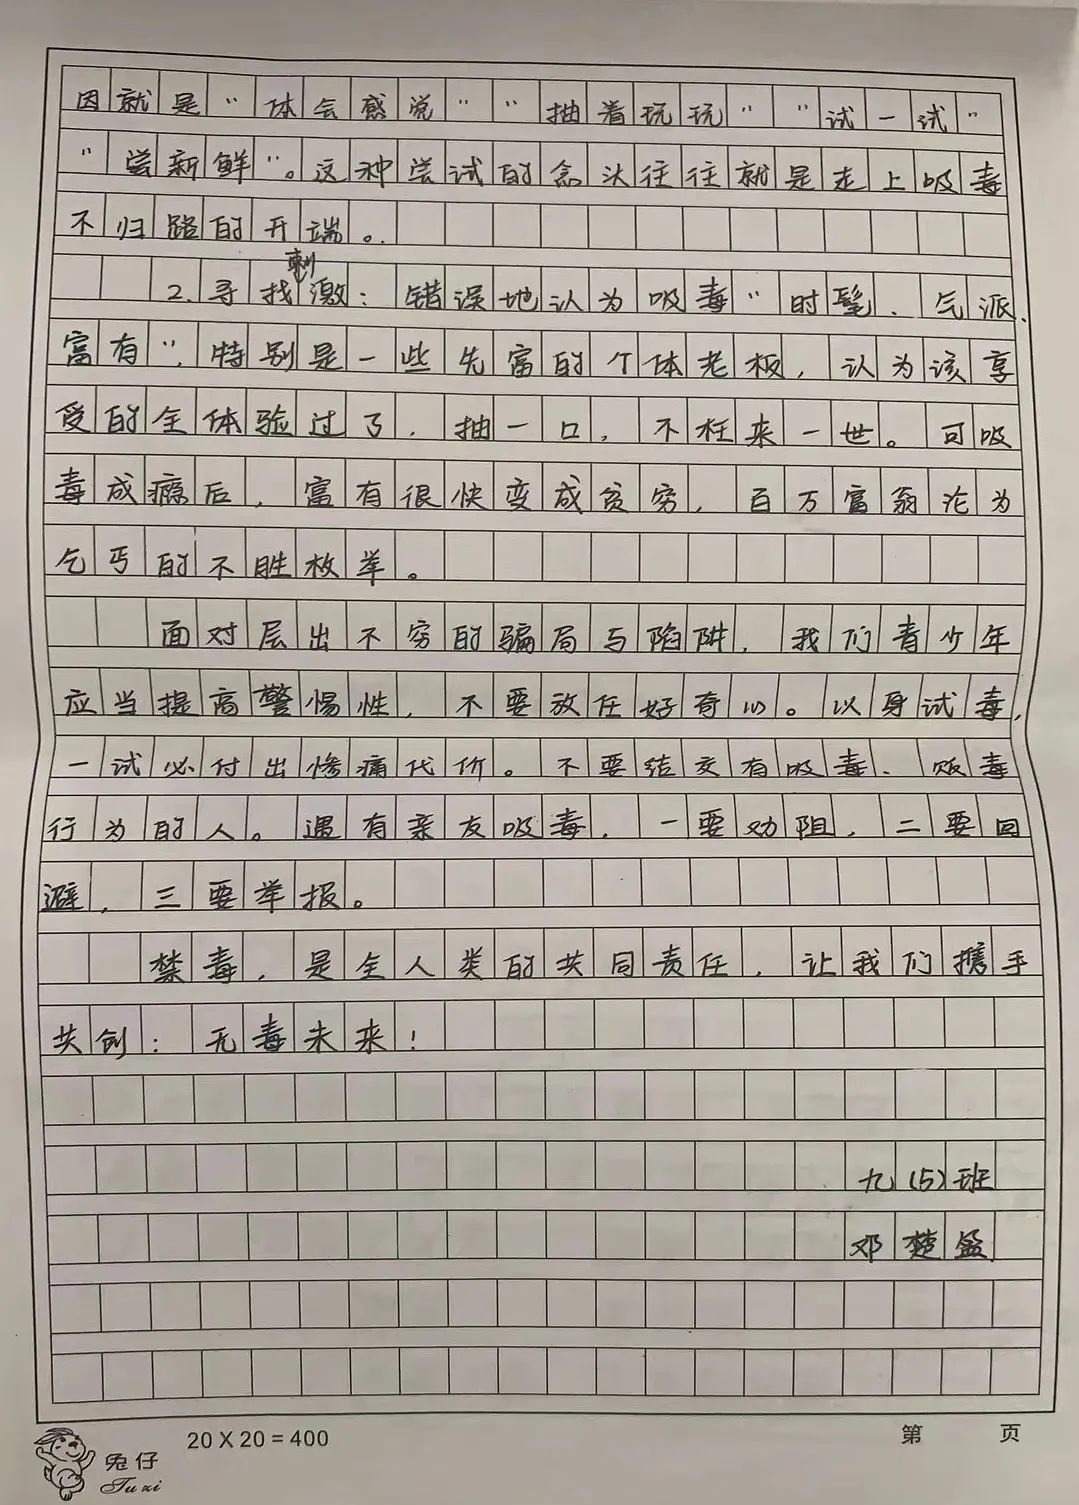 因就是"体会感觉""抽着玩玩""试一试"
"尝新鲜"。这种尝试的念头往往就是走上吸毒
不归路的开端。
2.寻找刺激：错误地认为吸毒"时髦、气派、
富有"，特别是一些先富的个体老板，认为该享
受的全体验过了，抽一口，不枉来一世。可吸
毒成瘾后，富有很快变成贫穷，百万富翁沦为
乞丐的不胜枚举。
面对层出不穷的骗局与陷阱，我们青少年
应当提高警惕性，不要放任好奇心。以身试毒，
一试必付出惨痛代价。不要结交有吸毒、贩毒
行为的人。遇有亲友吸毒，一要劝阻，二要回
避，三要举报。
禁毒，是全人类的共同责任，让我们携手
共创：无毒未来！
九(5)班
邓楚盈
兔仔
Tuzi
20X20=400
第 页